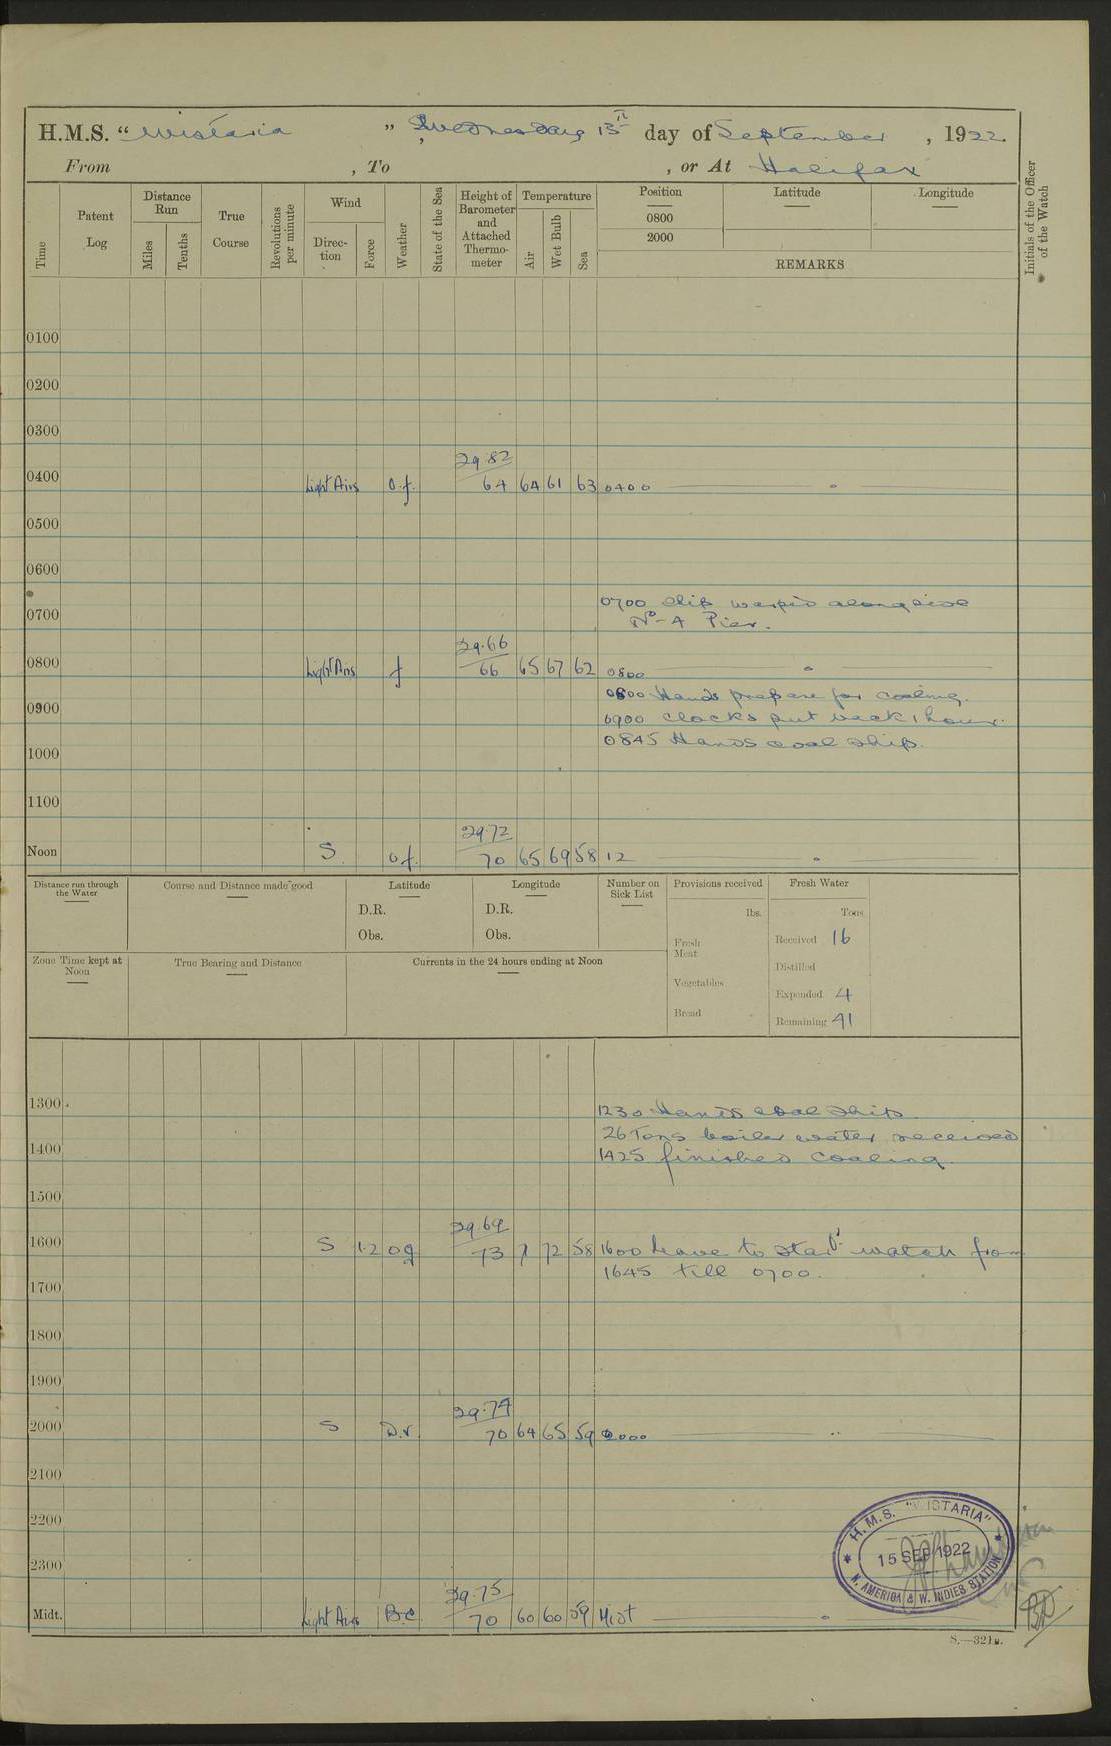 H.M.S. “ Wistaria ” Wednesday 13th day of September , 1922
From , To , or At Halifax
Time
Patent Log
Distance Run
Miles
Tenths
True Course
Revolutions per minute
Wind
Direc-tion
Force
Weather
State of the Sea
Height of Barometer and Attached Thermo-meter
Temperature
Air
Wet Bulb
Sea
Position
0800
2000
Latitude
Longitude
REMARKS
Initials of the Officer of the Watch
0100
0200
0300
29.82
0400 Light Airs o.f. 64 64 61 63 0400
0500
0600
0700 0700 Ship warped alongside
No - 4 Pier.
29.66
0800 Light Airs f 66 65 67 62 0800
0800 Hands prepare for coaling.
0900 0900 Clocks put back 1 hour.
0845 Hands coal ship.
1000
1100
29.72
Noon S. of. 70 65 69 58 12
Distance run through the Water
Course and Distance made good
Latitude
D.R.
Obs.
Longitude
D.R.
Obs.
Number on Sick List
Provisions received
lbs.
Fresh Meat
Vegetables
Bread
Fresh Water
Tons
Received 16
Distilled
Expended 4
Remaining 41
Zone Time kept at Noon
True Bearing and Distance
Currents in the 24 hours ending at Noon
1300 1230 Hands coal ship.
26 Tons boiler water received
1400 1425 finished coaling.
1500
29.69
1600 S 1.2 og 73 72 58 1600 Leave to Starbd watch from
1645 till 0700.
1700
1800
1900
29.74
2000 S 70 64 65 59 2000
2100
2200
2300
29.75
Midt. Light Airs B.C. 70 60 60 59 Midt
H.M.S. "WISTARIA"
15 SEP 1922
N. AMERICA & W. INDIES STATION
S.—321a.